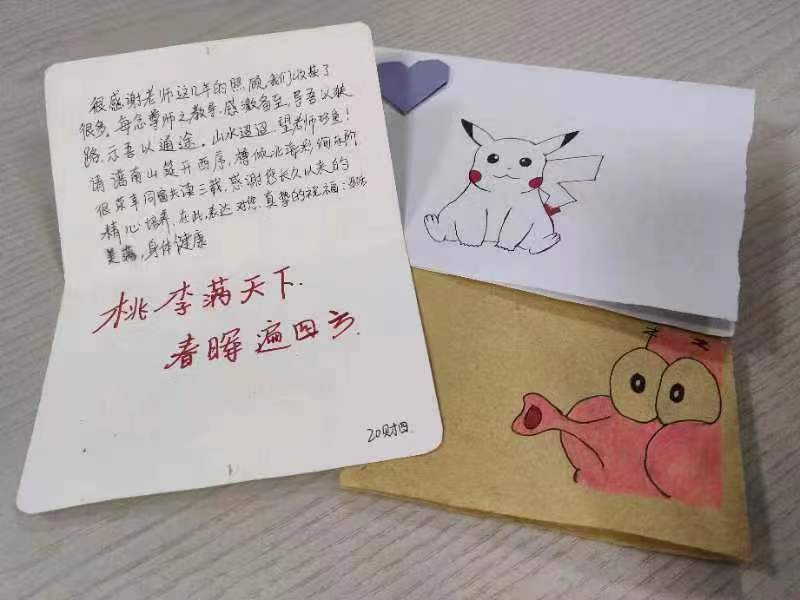 很感谢老师这几年的照顾,我们收获了
很多。每念尊师之教导,感激备至,导吾以狭
路,示吾以通途。山水迢迢,望老师珍重!
请满南山筵开西序,樽倾北海彩绚东阶
很荣幸同窗共读三载,感谢您长久以来的
精心培养,在此,表达对您真挚的祝福:
美满,身体健康
桃李满天下.
春晖遍四方.
20财四